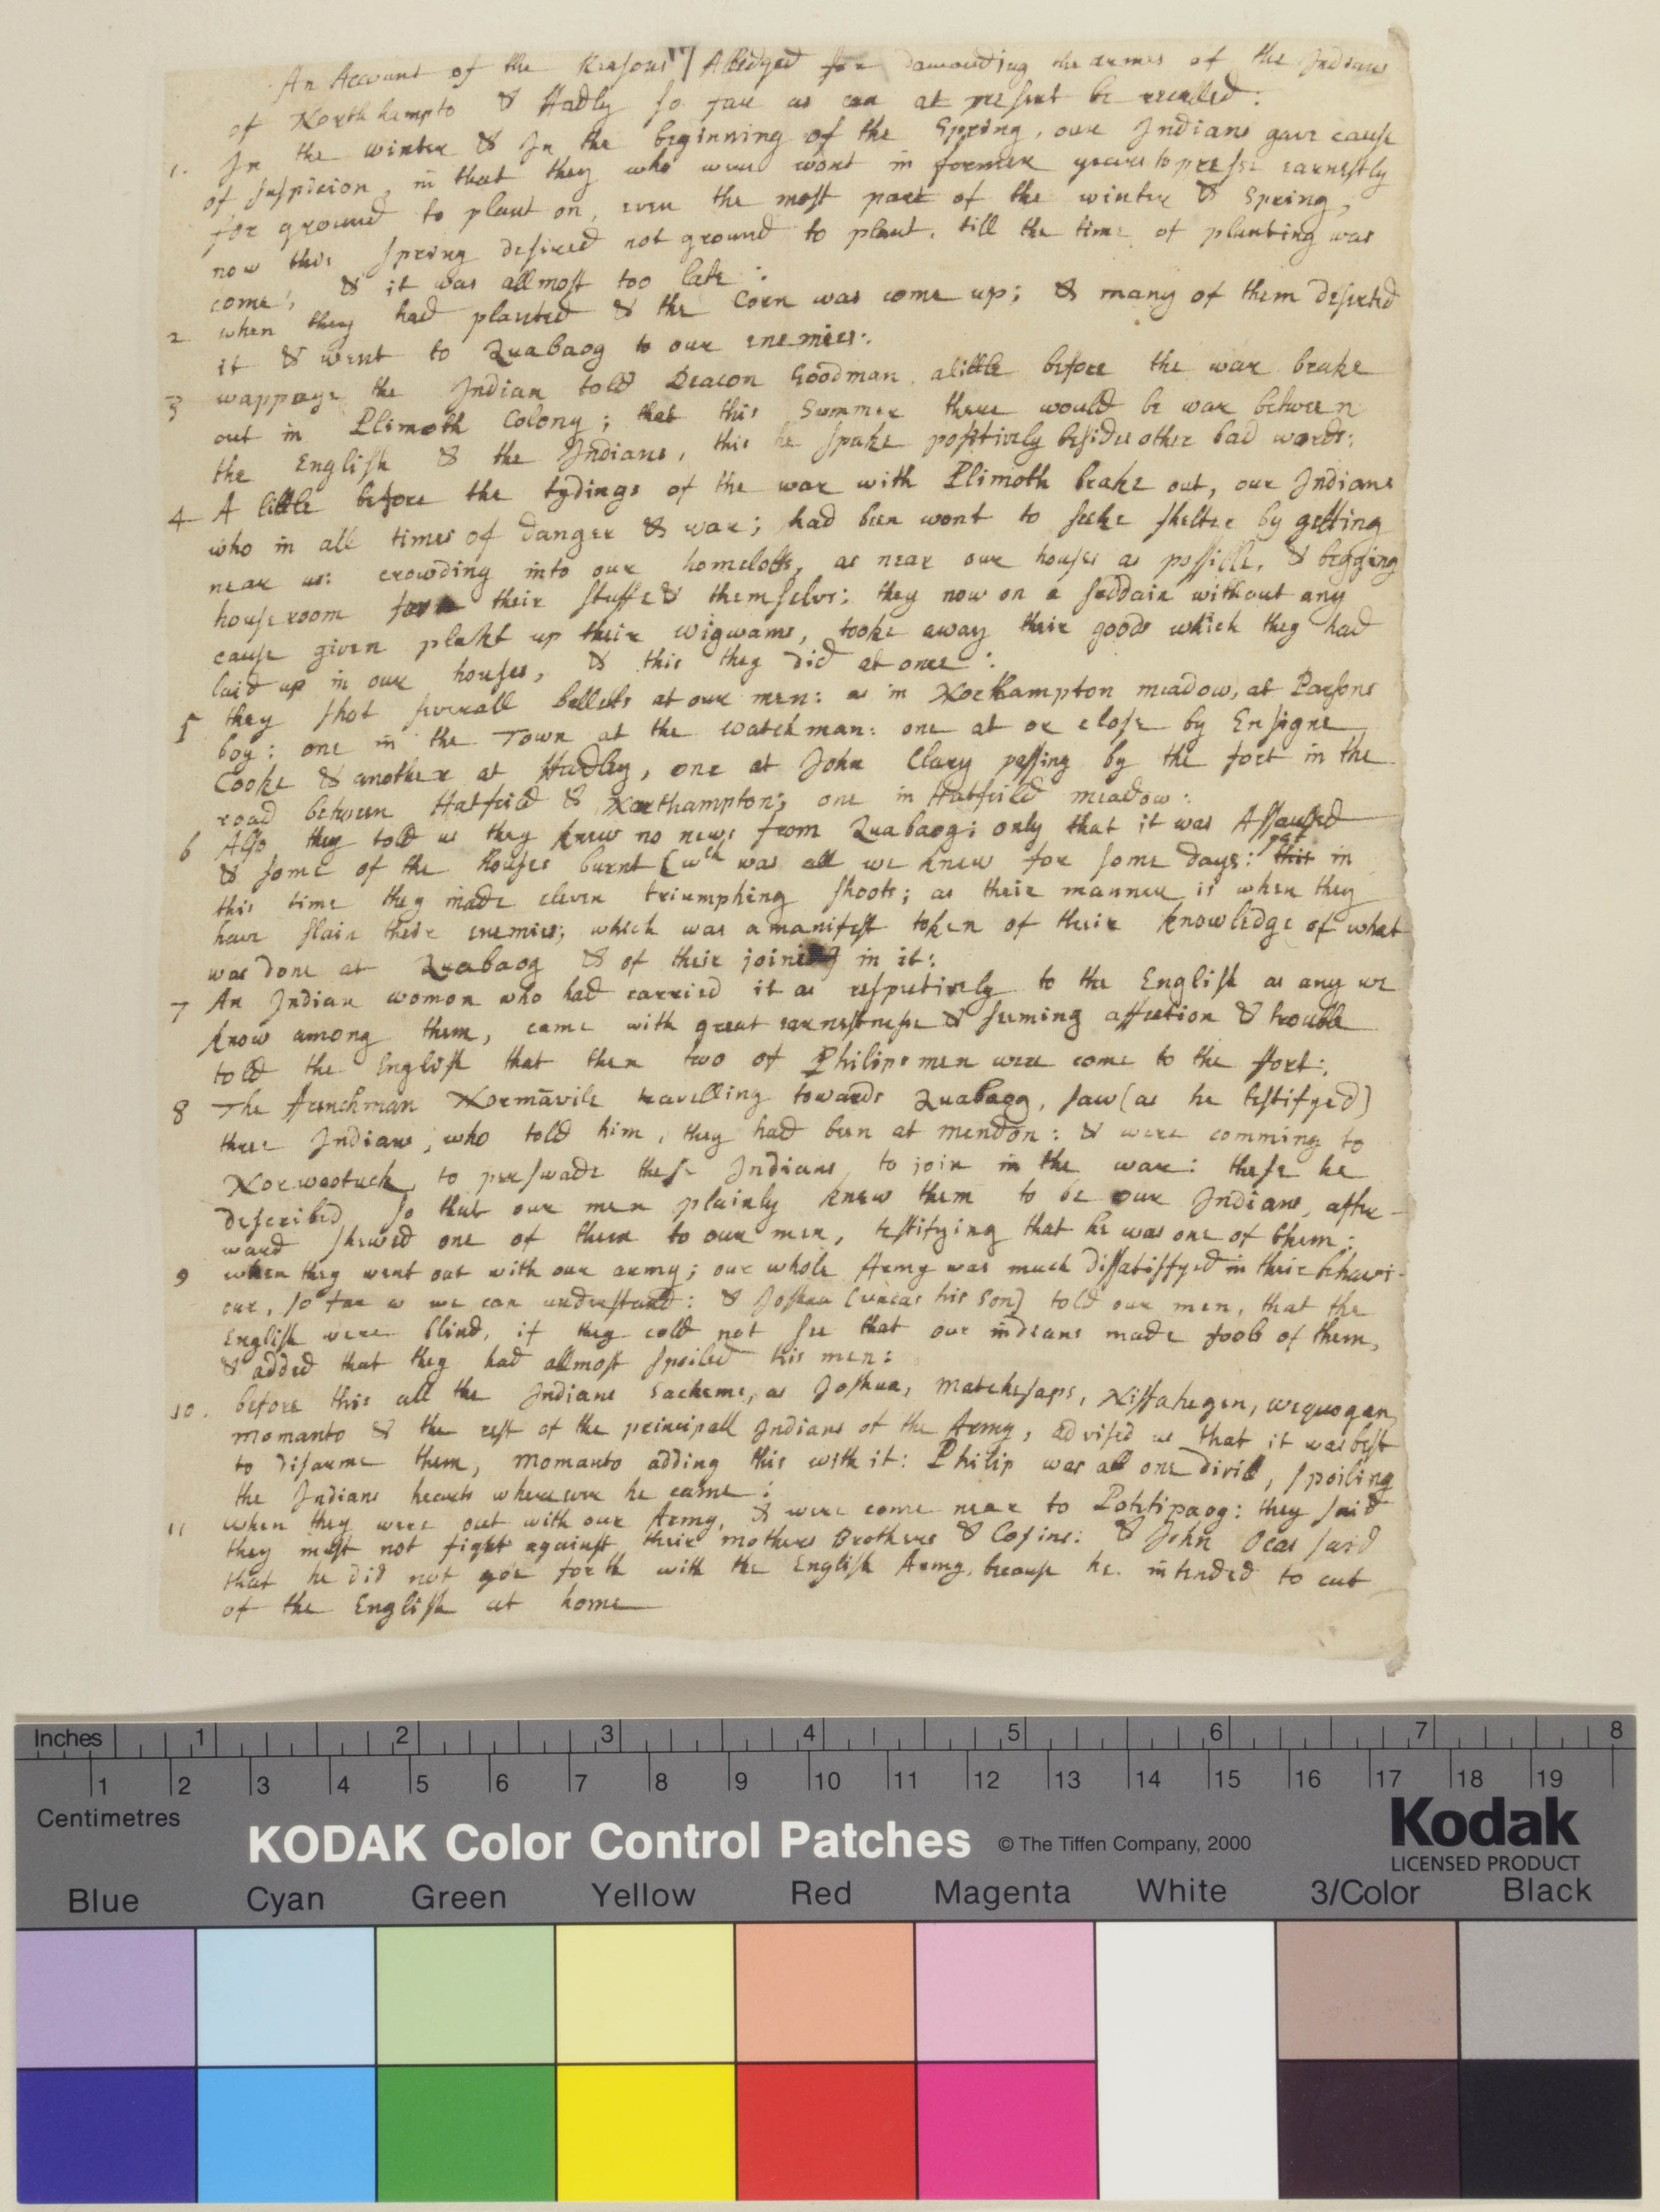 An Account of the Reasons Alledged for damanding the armes of the Indians
of Northhampto & Hadly so farr as can at present be recalled:
1. In the winter & In the beginning of the Spring, our Indians gave cause
of suspicion, in that they who were wont in former yeares to presse earnestly
for ground to plant on, even the most part of the winter & Spring,
now this spring desired not ground to plant, till the time of planting was
come, & it was allmost too late:
2 when they had planted & the Corn was come up; & many of them deserted
it & went to Quabaog to our enemies:
3 wappaye the Indian told Deacon Goodman, a little before the war brake
out in Plimoth Colony; that this Summer there would be war between
the English & the Indians, this he spake positively besides other bad words:
4 A little before the tydings of the war with Plimoth brake out, our Indians
who in all times of danger & war; had been wont to seeke shelter by getting
near us: crowding into our homelotts, as near our houses as possible, & begging
house room for their stuffe & themselves: they now on a suddain without any
cause given pluckt up their wigwams, tooke away their goods which they had
laid up in our houses, & this they did at once:
5 they shot severall bullets at our men: as in Northampton meadow, at Parsons
boy: one in the Town at the watchman: one at or close by Ensigne
Cooke & another at Hadley, one at John Clary passing by the fort in the
road between Hatfeild & Northampton; one in Hatfeild meadow:
6 Also they told us they knew no news from Quabaog; only that it was Assaulted
& some of the houses burnt (wch was all we knew for some days: yet in
this time they made eleven triumphing shoots; as their manner is when they
have slain their enemies; which was a manifest token of their knowledge of what
was done at Quabaog & of their joineing in it:
7 An Indian womon who had carried it as respectively to the English as any we
know among them, came with great earnestnesse & seeming affection & trouble
told the English that then two of Philips men were come to the ffort:
8 The ffrenchman Normāvile travelling towards Quabaog, saw (as he testifyed)
three Indians, who told him, they had been at mendon: & were comming to
Norwootuck, to perswade these Indians to join in the war: these he
described so that our men plainly knew them to be our Indians, after-
ward shewed one of them to our men, testifying that he was one of them:
9 when they went out with our army; our whole Army was much dissatisfyed in their behavi-
our, so far as we can understand: & Joshua (uncas his son) told our men, that the
English were blind, if they cold not see that our indians made fools of them,
& added that they had allmost spoiled his men:
10. before this all the Indians sachems, as Joshua, Matchesaps, Nissahegen, wequogan
Momanto & the rest of the principall Indians of the Army, advised us that it was best
to disarme them, Momanto adding this with it: Philip was all one divil, spoiling
the Indians hearts whereever he came:
11 when they were out with our Army, & were come near to Potetipaog: they said
they must not fight against their mothers Brothers & Cosins: & John Ocas said
that he did not goe forth with the English Army, because he intended to cut
of the English at home
Inches 1 2 3 4 5 6 7 8
1 2 3 4 5 6 7 8 9 10 11 12 13 14 15 16 17 18 19
Centimetres
KODAK Color Control Patches © The Tiffen Company, 2000 Kodak
LICENSED PRODUCT
Blue Cyan Green Yellow Red Magenta White 3/Color Black